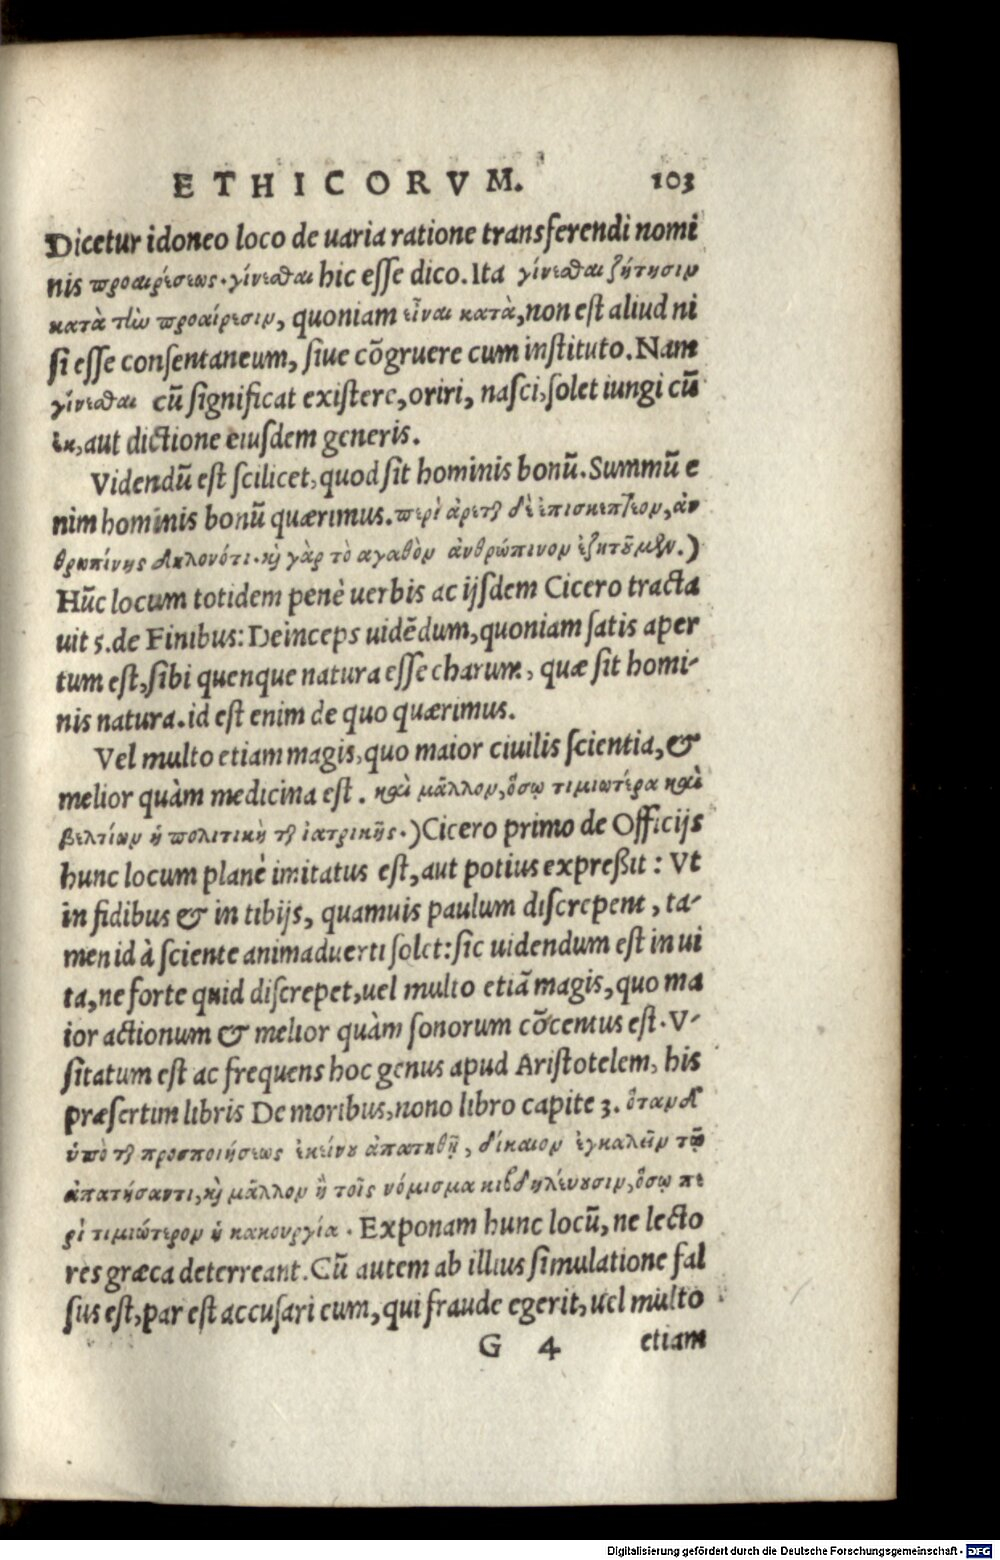 ETHICORVM. 103
Dicetur idoneo loco de uaria ratione transferendi nomi
nis προαιρέσεως. γίνεσθαι hic esse dico. Ita γίνεσθαι ζήτησιν
κατὰ τὴν προαίρεσιν, quoniam εἶναι κατὰ, non est aliud ni
si esse consentaneum, siue cõgruere cum instituto. Nam
γίνεσθαι cũ significat existere, oriri, nasci, solet iungi cũ
ἐκ, aut dictione eiusdem generis.
Videndũ est scilicet, quod sit hominis bonũ. Summũ e
nim hominis bonũ quærimus. περὶ ἀρετῆς δὲ ἐπισκεπτέον, ἀν
θρωπίνης δηλονότι. καὶ γὰρ τὸ αγαθὸν ἀνθρώπινον ἐζητοῦμεν.)
Hũc locum totidem penè uerbis ac ijsdem Cicero tracta
uit 5. de Finibus: Deinceps uidẽdum, quoniam satis aper
tum est, sibi quenque natura esse charum, quæ sit homi-
nis natura. id est enim de quo quærimus.
Vel multo etiam magis, quo maior ciuilis scientia, &
melior quàm medicina est. καὶ μᾶλλον, ὅσῳ τιμιωτέρα καὶ
βελτίων ἡ πολιτικὴ τῆς ἰατρικῆς.) Cicero primo de Officijs
hunc locum planè imitatus est, aut potius expreßit: Vt
in fidibus & in tibijs, quamuis paulum discrepent, ta-
men id à sciente animaduerti solet: sic uidendum est in ui
ta, ne forte quid discrepet, uel multo etiã magis, quo ma
ior actionum & melior quàm sonorum cõcentus est. V-
sitatum est ac frequens hoc genus apud Aristotelem, his
præsertim libris De moribus, nono libro capite 3. ὅταν δ'
ὑπὸ τῆς προσποιήσεως ἐκείνου ἀπατηθῇ, δίκαιον ἐγκαλεῖν τῷ
ἀπατήσαντι, καὶ μᾶλλον ἢ τοῖς νόμισμα κιβδηλεύουσιν, ὅσῳ πε
ρὶ τιμιώτερον ἡ κακουργία. Exponam hunc locũ, ne lecto
res græca deterreant. Cũ autem ab illius simulatione fal
sus est, par est accusari eum, qui fraude egerit, uel multo
G 4 etiam
Digitalisierung gefördert durch die Deutsche Forschungsgemeinschaft - DFG